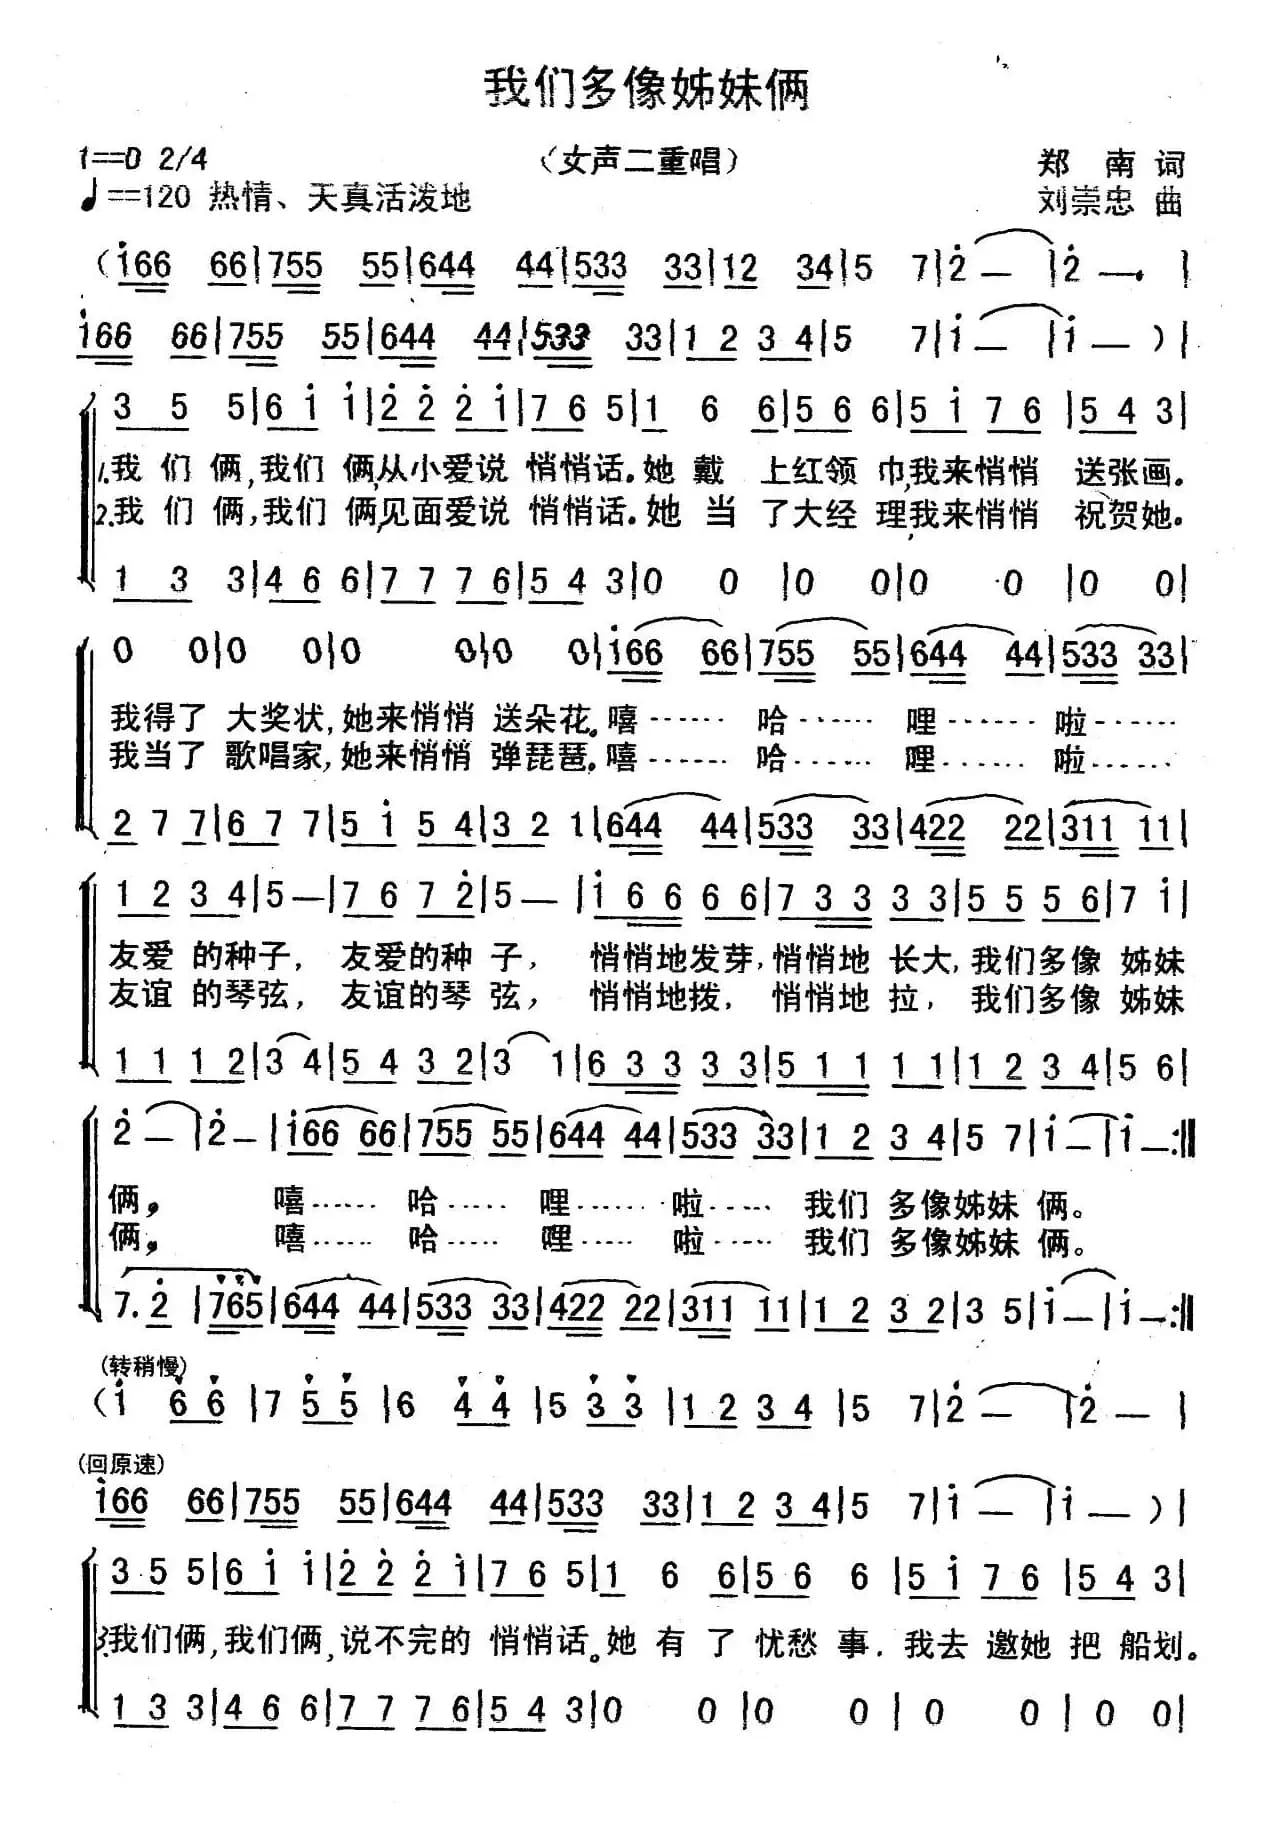 我们多像姊妹俩
1==D 2/4 （女声二重唱） 郑 南 词
♩==120 热情、天真活泼地 刘崇忠 曲
（i66 66|755 55|644 44|533 33|12 34|5 7|2 — |2 —. |
i66 66|755 55|644 44|533 33|1 2 3 4|5 7|i — |i — ）|
3 5 5|6 i i|2 2 2 i|7 6 5|1 6 6|5 6 6|5 i 7 6 |5 4 3|
1.我 们 俩,我们 俩,从小爱说 悄悄话.她 戴 上红领 巾,我来悄悄 送张画.
2.我 们 俩,我们 俩,见面爱说 悄悄话.她 当 了大经 理,我来悄悄 祝贺她.
1 3 3|4 6 6|7 7 7 6|5 4 3|0 0 |0 0|0 0 |0 0|
0 0|0 0|0 0|0 0|i66 66|755 55|644 44|533 33|
我得了 大奖状,她来悄悄 送朵花.嘻…… 哈…… 哩…… 啦……
我当了 歌唱家,她来悄悄 弹琵琶.嘻…… 哈…… 哩…… 啦……
2 7 7|6 7 7|5 i 5 4|3 2 1|644 44|533 33|422 22|311 11|
1 2 3 4|5—|7 6 7 2|5— |i 6 6 6 6|7 3 3 3 3|5 5 5 6|7 i|
友爱 的种子, 友爱的种 子, 悄悄地发芽,悄悄地 长大,我们多像 姊妹
友谊 的琴弦, 友谊的琴 弦, 悄悄地拨, 悄悄地 拉, 我们多像 姊妹
1 1 1 2|3 4|5 4 3 2|3 1|6 3 3 3 3|5 1 1 1 1|1 2 3 4|5 6|
2 — |2— |i66 66|755 55|644 44|533 33|1 2 3 4|5 7|i —|i —:‖
俩, 嘻…… 哈…… 哩…… 啦…… 我们 多像姊妹 俩。
俩, 嘻…… 哈…… 哩…… 啦…… 我们 多像姊妹 俩。
7. 2 |765|644 44|533 33|422 22|311 11|1 2 3 2|3 5|i —|i —:‖
(转稍慢)
（i 6 6 |7 5 5 |6 4 4 |5 3 3 |1 2 3 4 |5 7|2 — |2 — |
(回原速)
i66 66|755 55|644 44|533 33|1 2 3 4|5 7|i — |i — ）|
3 5 5|6 i i|2 2 2 i|7 6 5|1 6 6|5 6 6|5 i 7 6 |5 4 3|
3.我们俩,我们俩,说不完的 悄悄话。她 有 了 忧愁 事.我去 邀她 把 船划。
1 3 3|4 6 6|7 7 7 6|5 4 3|0 0 |0 0|0 0 |0 0|